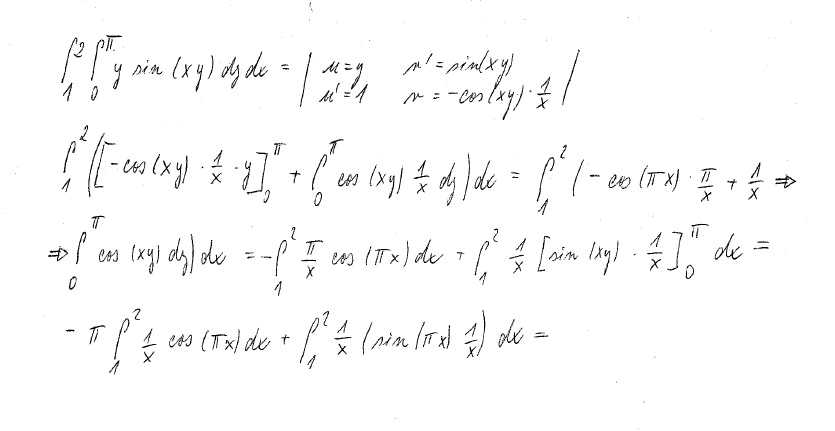 ∫₁² ∫₀^π y sin (xy) dy dx = | u=y   v'=sin(xy)
u'=1   v = -cos(xy) · 1/x |
∫₁² ([-cos(xy) · 1/x · y]₀^π + ∫₀^π cos (xy) 1/x dy) dx = ∫₁² (- cos (πx) · π/x + 1/x ⇒
⇒ ∫₀^π cos (xy) dy) dx = -∫₁² π/x cos (πx) dx + ∫₁² 1/x [sin (xy) · 1/x]₀^π dx =
- π ∫₁² 1/x cos (πx) dx + ∫₁² 1/x (sin (πx) 1/x) dx =